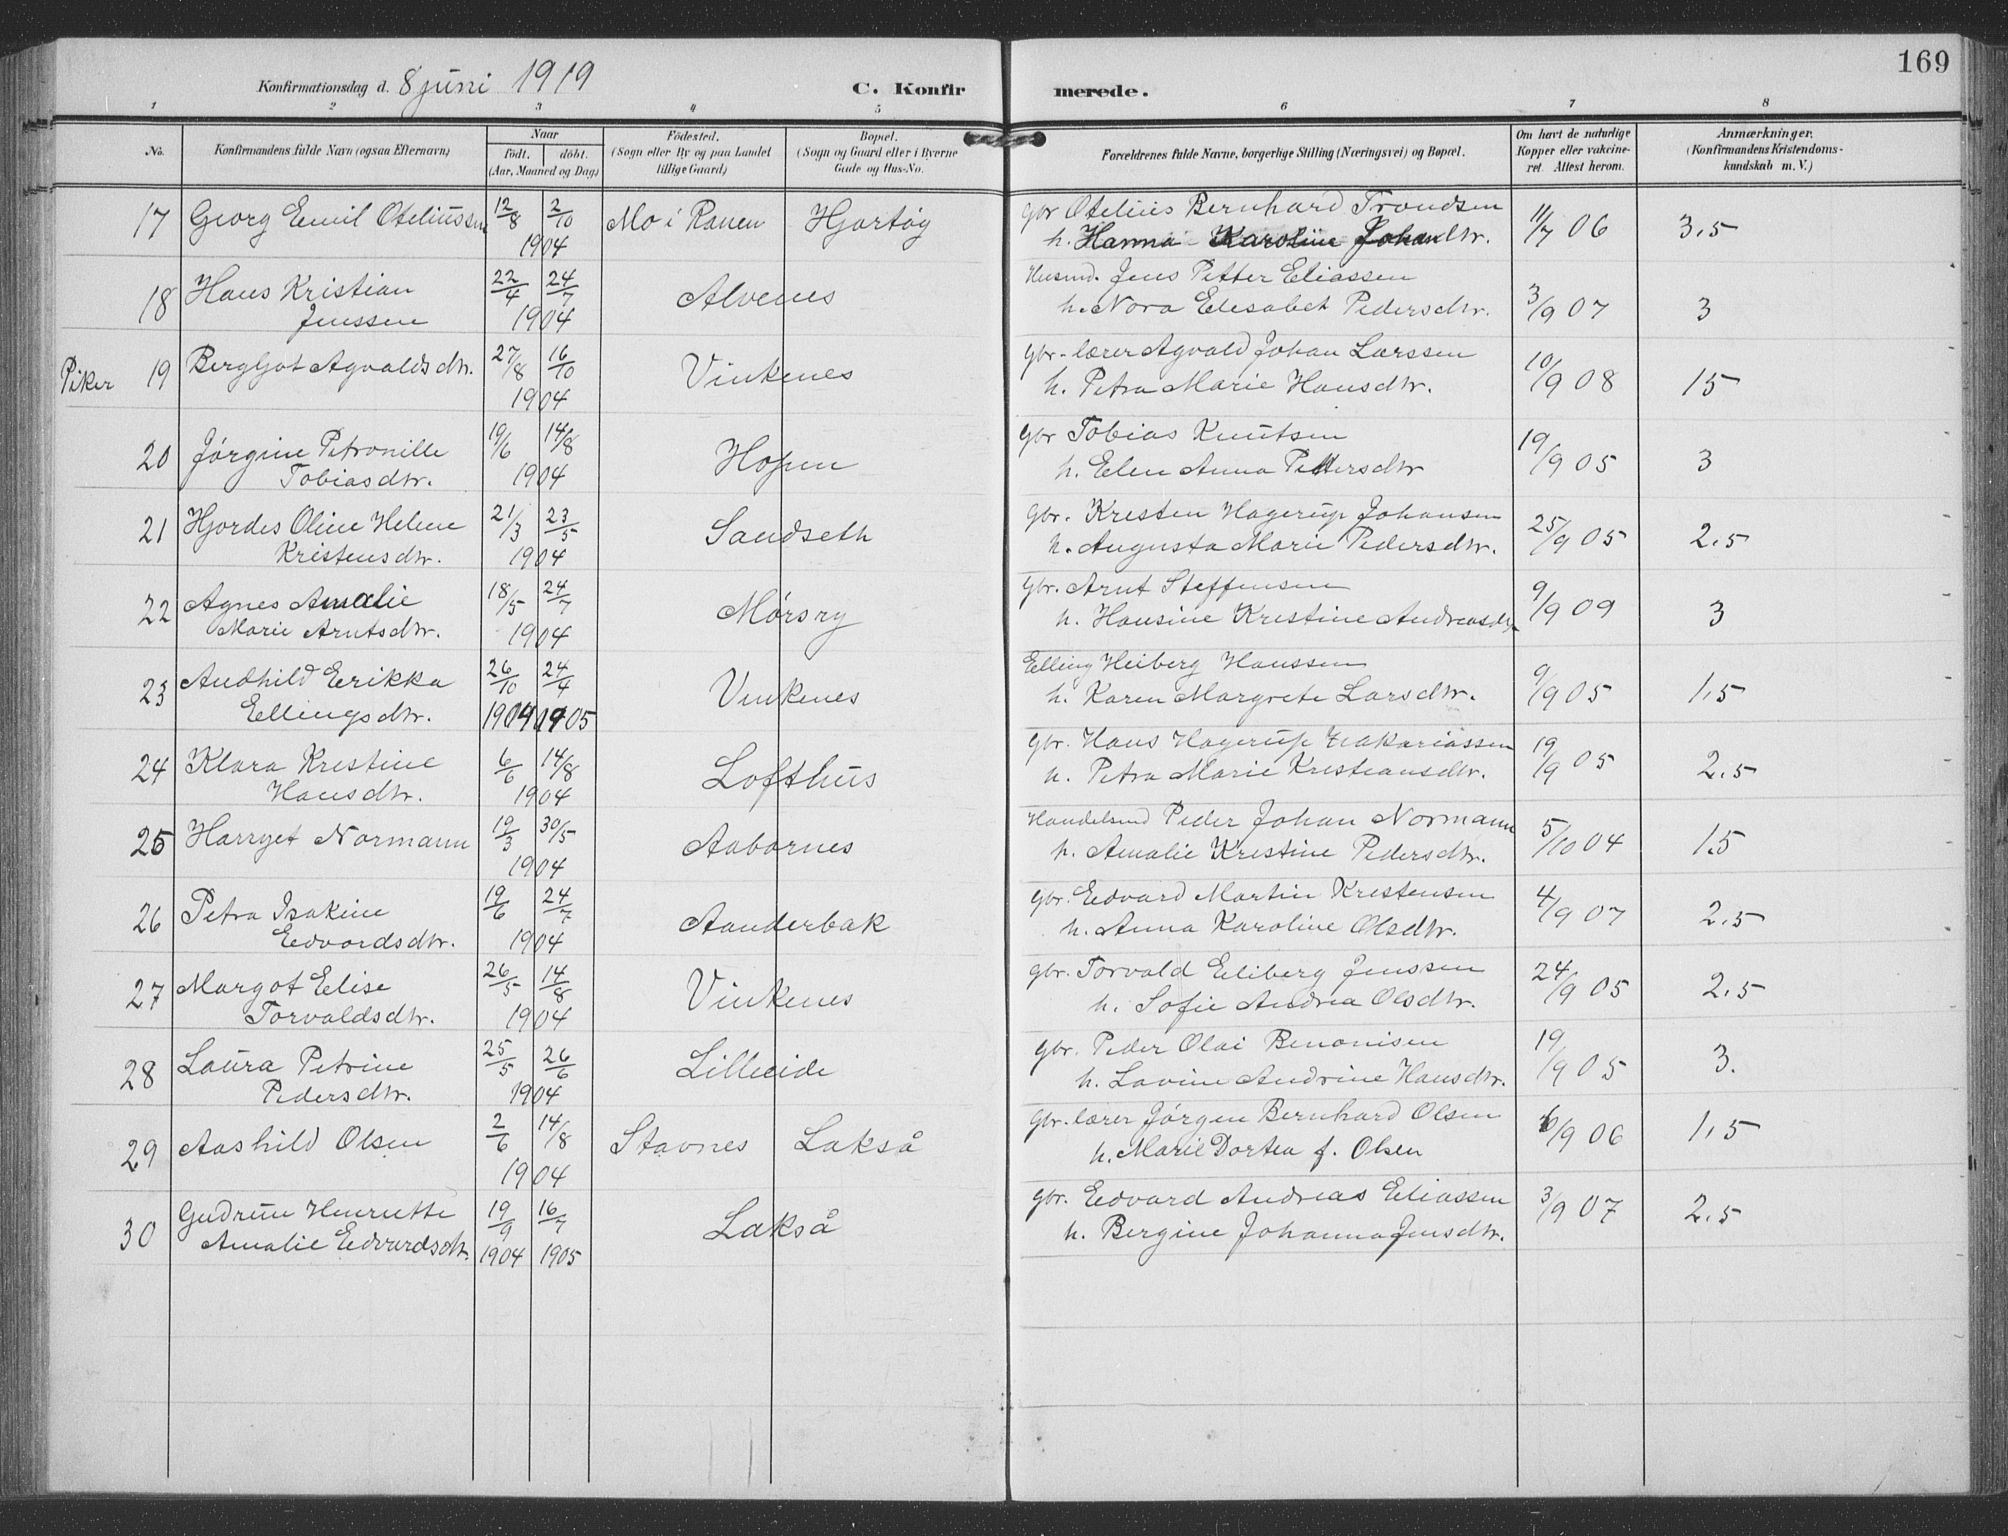 169
Konfirmationsdag d. 8 juni 1919 C. Konfirmerede.
1 2 3 4 5 6 7 8
No. Konfirmandens fulde Navn (ogsaa Efternavn) Naar födt. döbt. (Aar, Maaned og Dag) Födested. (Sogn eller By og paa Landet tillige Gaard) Bopæl. (Sogn og Gaard eller i Byerne Gade og Hus-No. Forældrenes fulde Navne, borgerlige Stilling (Næringsvei) og Bopæl. Om havt de naturlige Kopper eller vakcineret. Attest herom. Anmærkninger. (Konfirmandens Kristendomskundskab m. V.)
17 Georg Emil Oteliussen 12/8 2/10 Mo i Ranen Hjartøy gbr Otelius Bernhard Trondsen 11/7 06 3,5
1904 h. Hanna Karoline Johandtr.
18 Hans Kristian 22/4 24/7 Alvenes Husmd. Jens Petter Eliassen 3/9 07 3
Jenssen 1904 h. Nora Elesabet Pedersdtr.
Piker 19 Bergljot Agvaldsdtr. 27/8 16/10 Vinkenes gbr-lærer Agvald Johan Larssen 10/9 08 15
1904 h. Petra Marie Hansdtr.
20 Jørgine Petronille 19/6 14/8 Hopen gbr Tobias Knutsen 19/9 05 3
Tobiasdtr. 1904 h. Elen Anna Pettersdtr
21 Hjordes Oline Helene 21/3 23/5 Sandseth gbr. Kresten Hagerup Johansen 25/9 05 2,5
Kristensdtr. 1904 h. Augusta Marie Pedersdtr.
22 Agnes Amalie 18/5 24/7 Mørsry gbr. Arnt Steffensen 9/9 09 3
Marie Arntsdtr. 1904 h. Hansine Kristine Andreasdtr
23 Audhild Erikka 26/10 24/4 Vinkenes Elling Heiberg Hanssen 9/9 05 1,5
Ellingsdtr. 1904 1905 h. Karen Margrete Larsdtr.
24 Klara Krestine 6/6 14/8 Lofthus gbr. Hans Hagerup Zakariassen 19/9 05 2,5
Hansdtr. 1904 h. Petra Marie Kristiansdtr.
25 Harryet Normann 19/3 30/5 Aabornes Handelsmd Peder Johan Normann 5/10 04 1.5
1904 h. Amalie Kristine Pedersdtr.
26 Petra Isakine 19/6 24/7 Aanderbak gbr. Edvard Martin Krestensen 4/9 07 2,5
Edvardsdtr. 1904 h. Anna Karoline Olsdtr.
27 Margot Elise 26/5 14/8 Vinkenes gbr. Torvald Eliberg Jenssen 24/9 05 2,5
Torvaldsdtr. 1904 h. Sofie Andrea Olsdtr.
28 Laura Petrine 25/5 26/6 Lilleeide gbr. Peder Olai Benonisen 19/9 05 3.
Pedersdtr. 1904 h. Lovine Andrine Hansdtr.
29 Aashild Olsen 2/6 14/8 Stavnes Lakså gbr.-lærer Jørgen Bernhard Olsen 6/9 06 1,5
1904 h. Marie Dortea f. Olsen
30 Gudrun Henriette 19/9 16/7 Lakså gbr. Edvard Andreas Eliassen 3/9 07 2,5
Amalie Edvardsdtr. 1904 1905 h. Bergine Johanna Jensdtr.